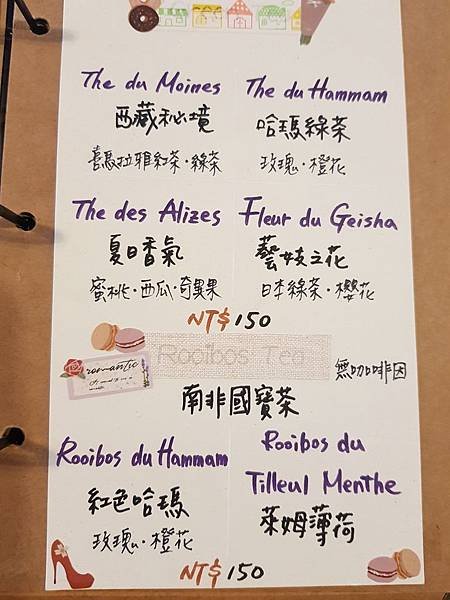 The du Moines
西藏秘境
喜瑪拉雅紅茶·綠茶
The du Hammam
哈瑪綠茶
玫瑰·橙花
The des Alizes
夏日香氣
蜜桃·西瓜·奇異果
Fleur du Geisha
藝妓之花
日本綠茶·櫻花
NT$150
romantic
Rooibos Tea
無咖啡因
南非國寶茶
Rooibos du Hammam
紅色哈瑪
玫瑰·橙花
Rooibos du
Tilleul Menthe
萊姆薄荷
NT$150